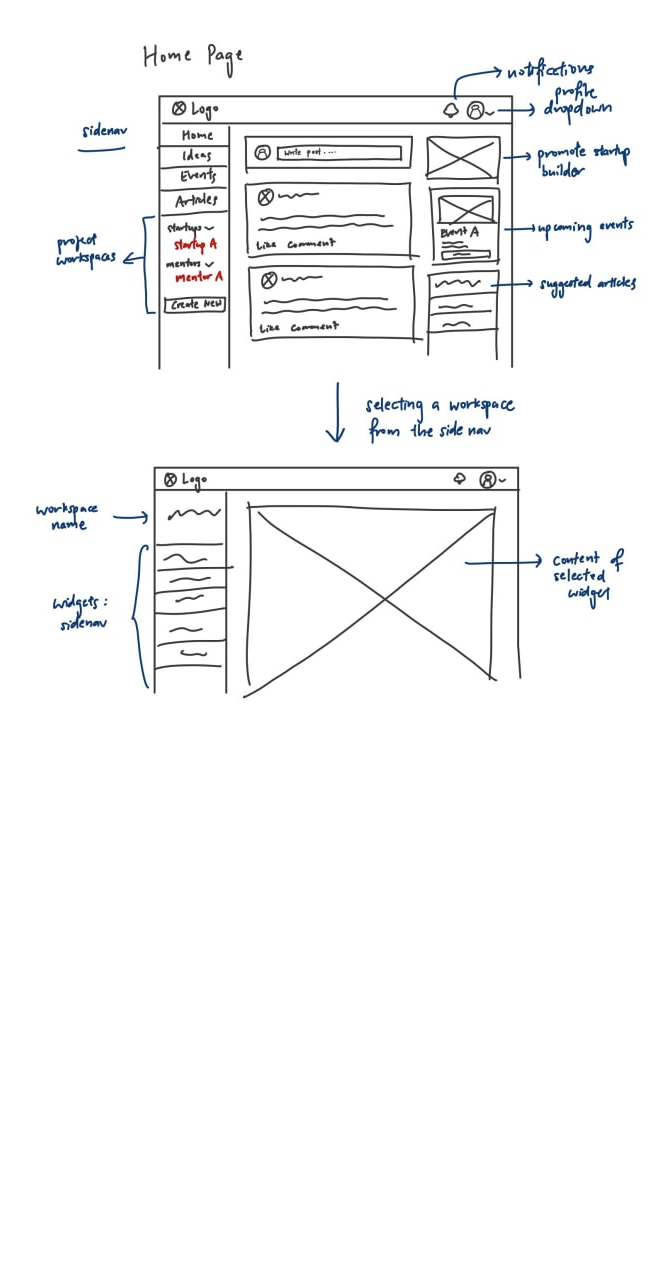 Home Page
notifications
profile
dropdown
Logo
sidenav
Home
Ideas
Events
Articles
startups
startup A
mentors
mentor A
Create New
project
workspaces
Write post....
Like Comment
Like Comment
promote startup
builder
Event A
upcoming events
suggested articles
selecting a workspace
from the side nav
Logo
workspace
name
widgets:
sidenav
content of
selected
widget